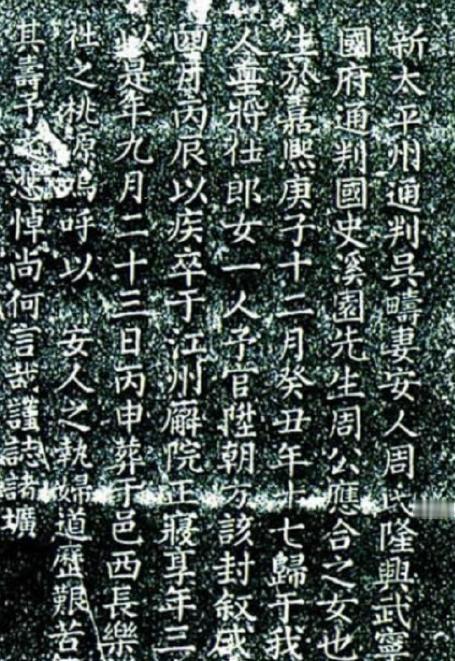 新太平州通判吳疇妻安人周氏隆興武寧
國府通判國史溪園先生周公應合之女也
生於嘉熙庚子十二月癸丑年十七歸于我
人童將仕郎女一人予官陞朝方該封叙咸
四月丙辰以疾卒于江州廨院正寢享年三
以是年九月二十三日丙申葬于邑西長樂
社之桃源嗚呼以 安人之執婦道歷艱苦
其壽予之悲悼尚何言哉謹誌諸壙